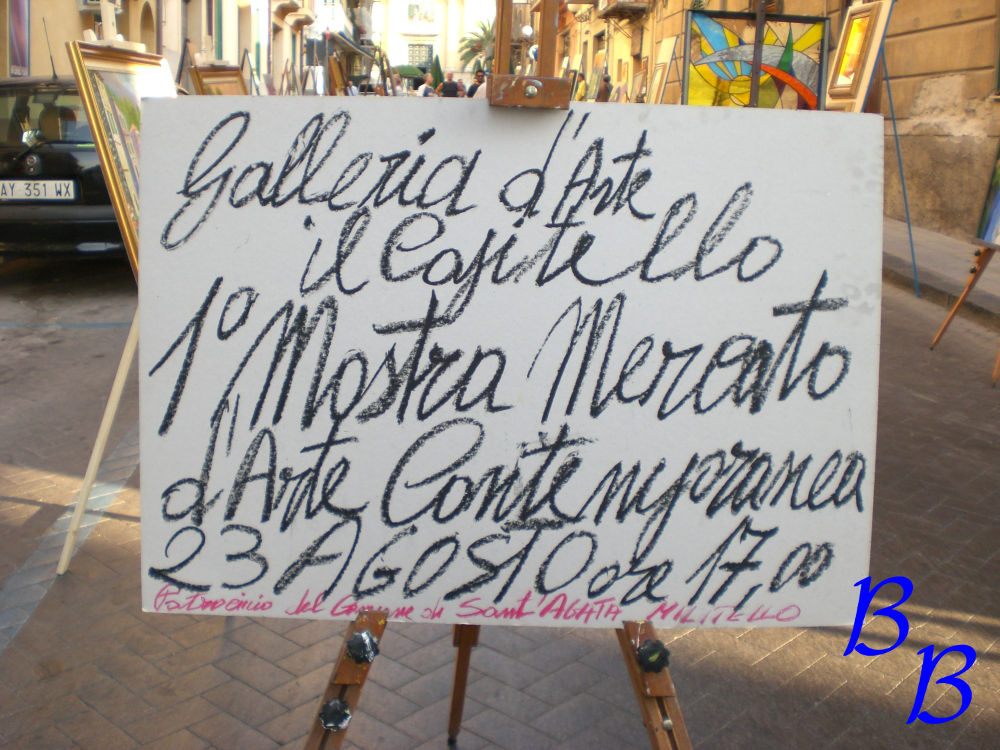 Galleria d'Arte
il Capitello
1º Mostra Mercato
d'Arte Contemporanea
23 AGOSTO ore 17,00
Patrocinio del Comune di Sant'AGATA MILITELLO
AY 351 WX
B
B